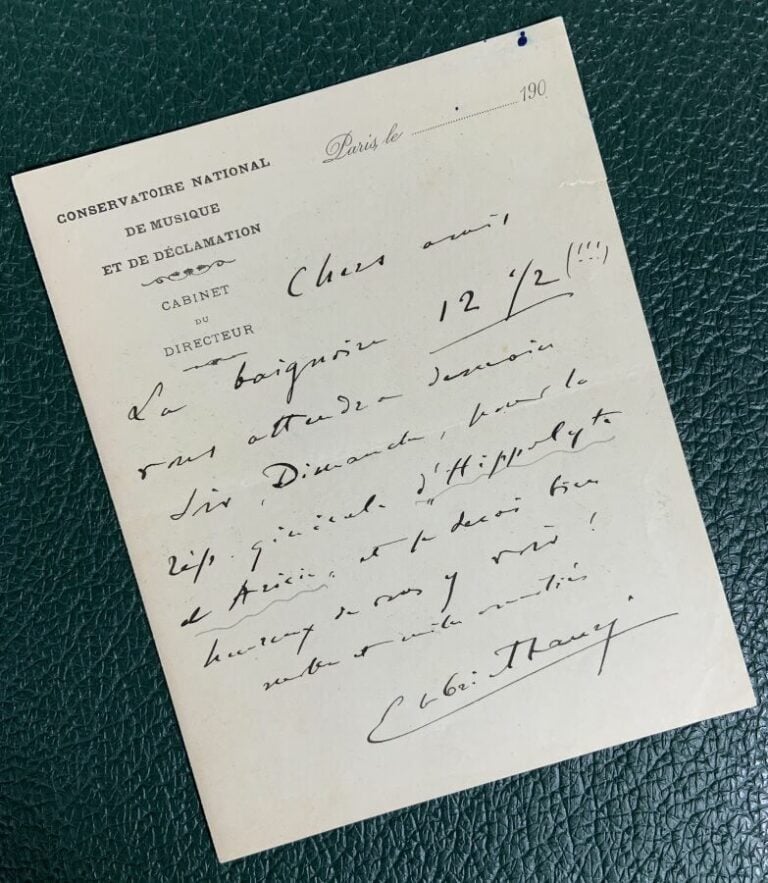 Paris, le 190
CONSERVATOIRE NATIONAL
DE MUSIQUE
ET DE DÉCLAMATION
CABINET
DU
DIRECTEUR
Chers amis
La baignoire 12 1/2 (!!!)
vous attendra demain
soir, Dimanche, pour la
rép. générale d'"Hippolyte
et Aricie", et je serai bien
heureux de vous y voir!
mille amitiés